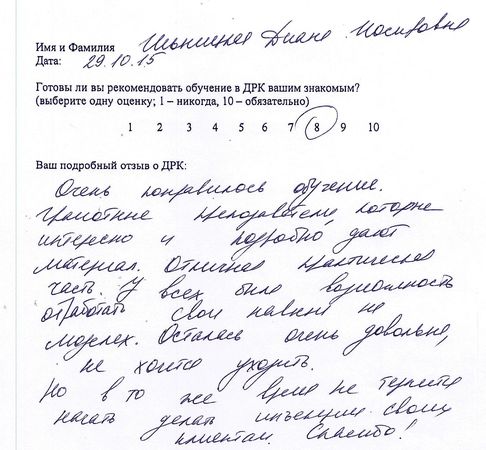 Имя и Фамилия Диана Иосифовна
Дата: 29.10.15
Готовы ли вы рекомендовать обучение в ДРК вашим знакомым?
(выберите одну оценку; 1 – никогда, 10 – обязательно)
1 2 3 4 5 6 7 8 9 10
Ваш подробный отзыв о ДРК:
Очень понравилось обучение.
Грамотные преподаватели, которые
интересно и подробно дают
материал. Отличная практическая
часть. У всех была возможность
отработать свои навыки на
моделях. Осталась очень довольна,
не хочется уходить.
Но в то же время не терпится
начать делать инъекции своим
клиентам. Спасибо!